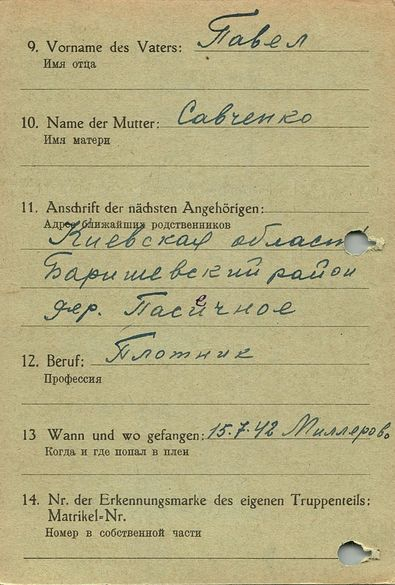 9. Vorname des Vaters: Павел
Имя отца
10. Name der Mutter: Савченко
Имя матери
11. Anschrift der nächsten Angehörigen:
Адрес ближайших родственников
Киевская област
Баришевский район
дер. Пасечное
12. Beruf: Плотник
Профессия
13 Wann und wo gefangen: 15.7.42 Миллерово
Когда и где попал в плен
14. Nr. der Erkennungsmarke des eigenen Truppenteils:
Matrikel-Nr.
Номер в собственной части